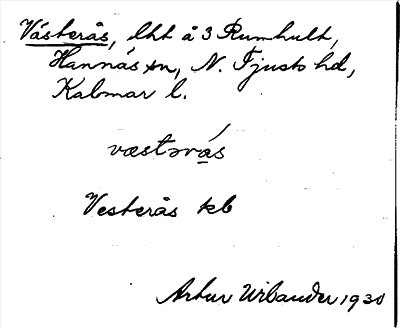 Västerås, lht å 3 Rumhult,
Hannäs sn, N. Tjusts hd,
Kalmar l.
væstərás
Vesterås kb
Artur Wibander 1930